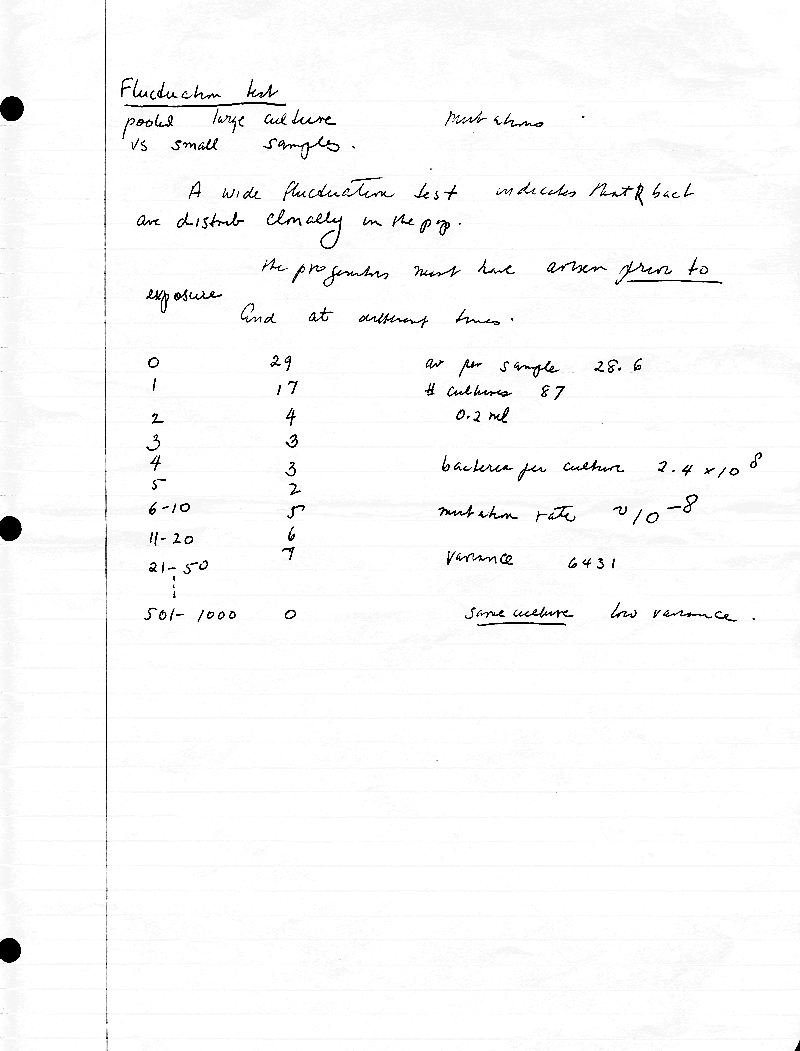 Fluctuation test
pooled large culture Mutations
vs small samples.
A wide fluctuation test indicates that R bact
are distrib clonally in the pop.
the progenitors must have arisen prior to
exposure
and at different times.
0 29 av per sample 28.6
1 17 # cultures 87
2 4 0.2 ml
3 3
4 3 bacteria per culture 2.4 x 10^8
5 2
6-10 5 mutation rate ~10^-8
11-20 6
21-50 7 Variance 6431
501-1000 0 same culture low variance.